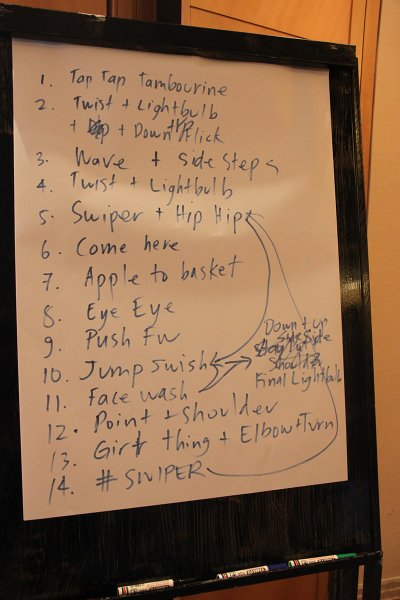 1. Tap Tap Tambourine
2. Twist + Lightbulb
+ + Down Flick
3. Wave + Side Step
4. Twist + Lightbulb
5. Swiper + Hip Hip
6. Come here
7. Apple to basket
8. Eye Eye
9. Push Fw
10. Jump Swish
11. Face wash
12. Point + Shoulder
13. Girl thing + Elbow + Turn
14. # SWIPER
Down + up
Side
Shoulder
Final Lightbulb